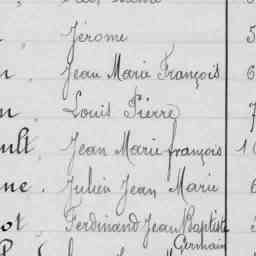 Jérome 5
Jean Marie François 6
Louis Pierre 7
ult, Jean Marie françois 10
ne. Julien Jean Marie 6
ot, Ferdinand Jean Baptiste
Germain